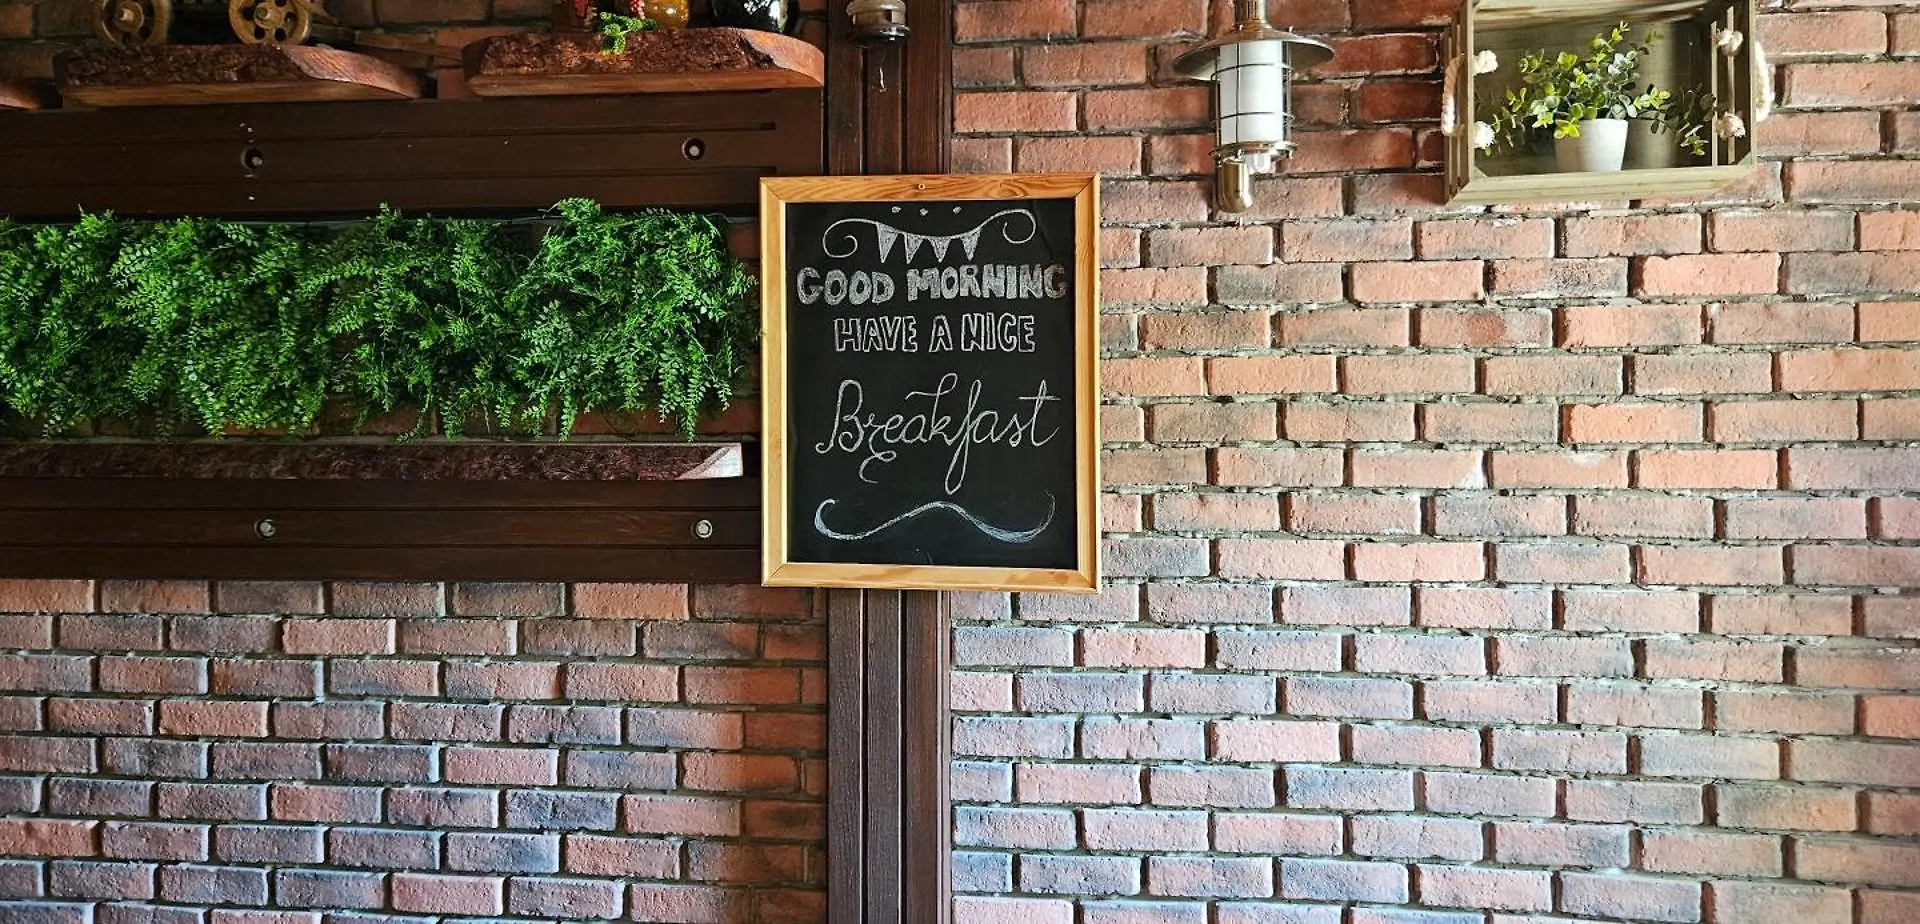 GOOD MORNING
HAVE A NICE
Breakfast